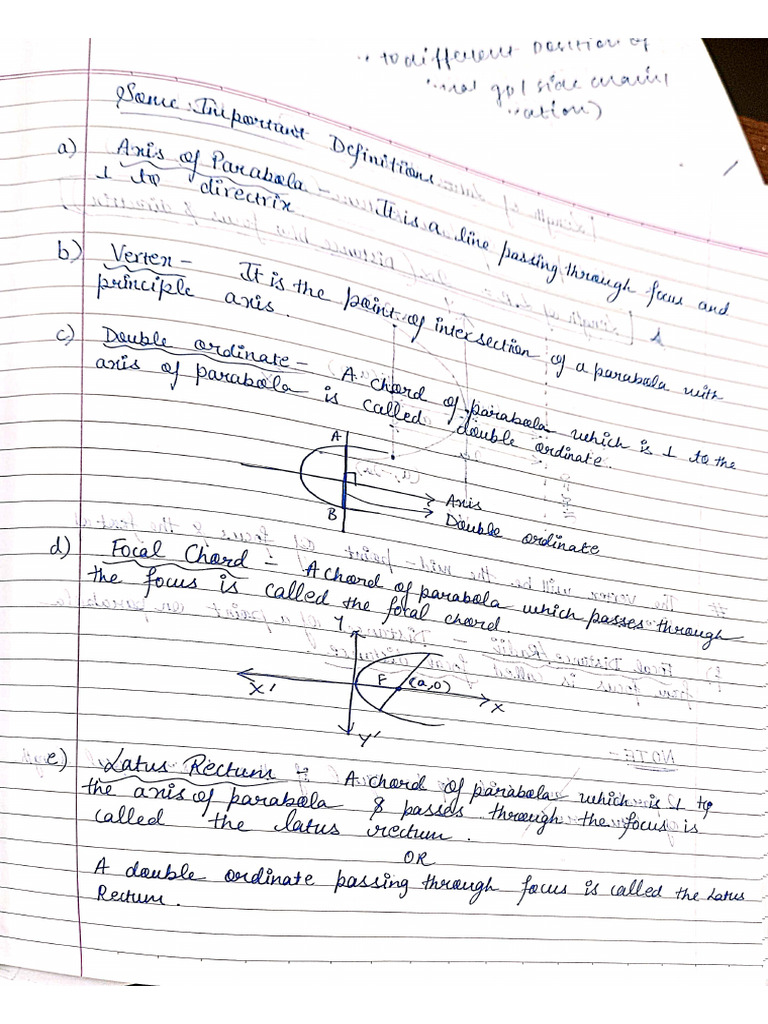 to different position of
side
ation)
Some Important Definitions
a) Axis of Parabola - It is a line passing through focus and
⊥ to directrix.
b) Vertex - It is the point of intersection of a parabola with
principle axis.
c) Double ordinate - A chord of parabola which is ⊥ to the
axis of parabola is called double ordinate.
A
Axis
B
Double ordinate
d) Focal Chord - A chord of parabola which passes through
the focus is called the focal chord.
Y
F (a,0)
X' X
Y'
e) Latus Rectum - A chord of parabola which is ⊥ to
the axis of parabola & passes through the focus is
called the latus rectum.
OR
A double ordinate passing through focus is called the Latus
Rectum.